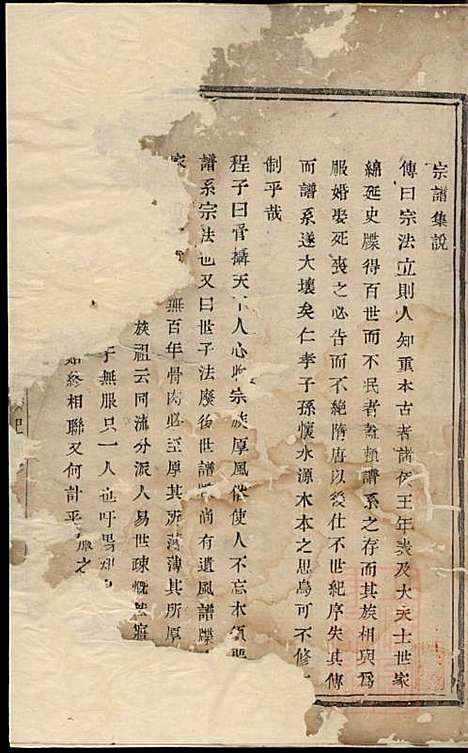 宗譜集説
傳曰宗法立則人知重本古者諸侯王年表及大夫士世家
綿延史牒得百世而不民者蓋頼譜系之存而其族相與爲
服婚娶死喪之必告而不絶隋唐以後仕不世紀序失其傳
而譜系遂大壞矣仁孝子孫懷水源木本之思烏可不修
制乎哉
程子曰管攝天下人心收宗族厚風俗使人不忘本須
譜系宗法也又曰世子法廢後世譜牒尚有遺風譜牒
家 無百年骨肉必至厚其所薄薄其所厚
族祖云同流分派人易世疎慨然寤
于無服只一人也吁
始終相聯又何計乎 服之